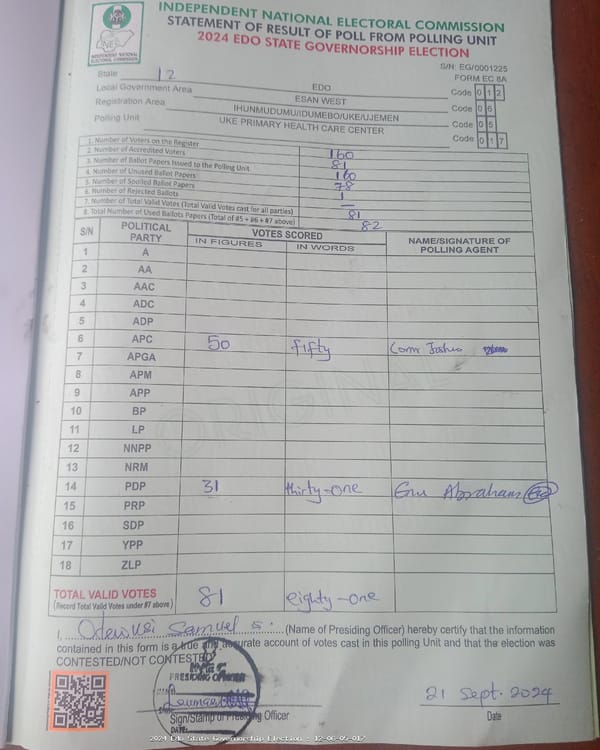 INDEPENDENT NATIONAL ELECTORAL COMMISSION
STATEMENT OF RESULT OF POLL FROM POLLING UNIT
2024 EDO STATE GOVERNORSHIP ELECTION
INEC
INDEPENDENT NATIONAL
ELECTORAL COMMISSION
S/N: EG/0001225
FORM EC 8A
State 12 EDO Code 0 1 2
Local Government Area ESAN WEST Code 0 6
Registration Area IHUNMUDUMU/IDUMEBO/UKE/UJEMEN Code 0 5
Polling Unit UKE PRIMARY HEALTH CARE CENTER Code 0 1 7
1. Number of Voters on the Register 160
2. Number of Accredited Voters 81
3. Number of Ballot Papers Issued to the Polling Unit 160
4. Number of Unused Ballot Papers 78
5. Number of Spoiled Ballot Papers 1
6. Number of Rejected Ballots —
7. Number of Total Valid Votes (Total Valid Votes cast for all parties) 81
8. Total Number of Used Ballots Papers (Total of #5 + #6 + #7 above) 82
S/N POLITICAL PARTY VOTES SCORED NAME/SIGNATURE OF POLLING AGENT
IN FIGURES IN WORDS
1 A
2 AA
3 AAC
4 ADC
5 ADP
6 APC 50 fifty Com
7 APGA
8 APM
9 APP
10 BP
11 LP
12 NNPP
13 NRM
14 PDP 31 thirty-one Abraham
15 PRP
16 SDP
17 YPP
18 ZLP
ORIGINAL
TOTAL VALID VOTES 81 eighty-one
(Record Total Valid Votes under #7 above)
I, Samuel S. (Name of Presiding Officer) hereby certify that the information
contained in this form is a true and accurate account of votes cast in this polling Unit and that the election was
CONTESTED/NOT CONTESTED
PRESIDING OFFICER
21 Sept. 2024
Sign/Stamp of Presiding Officer Date
DATE:
2024 Edo State Governorship Election - 12-06-05-017